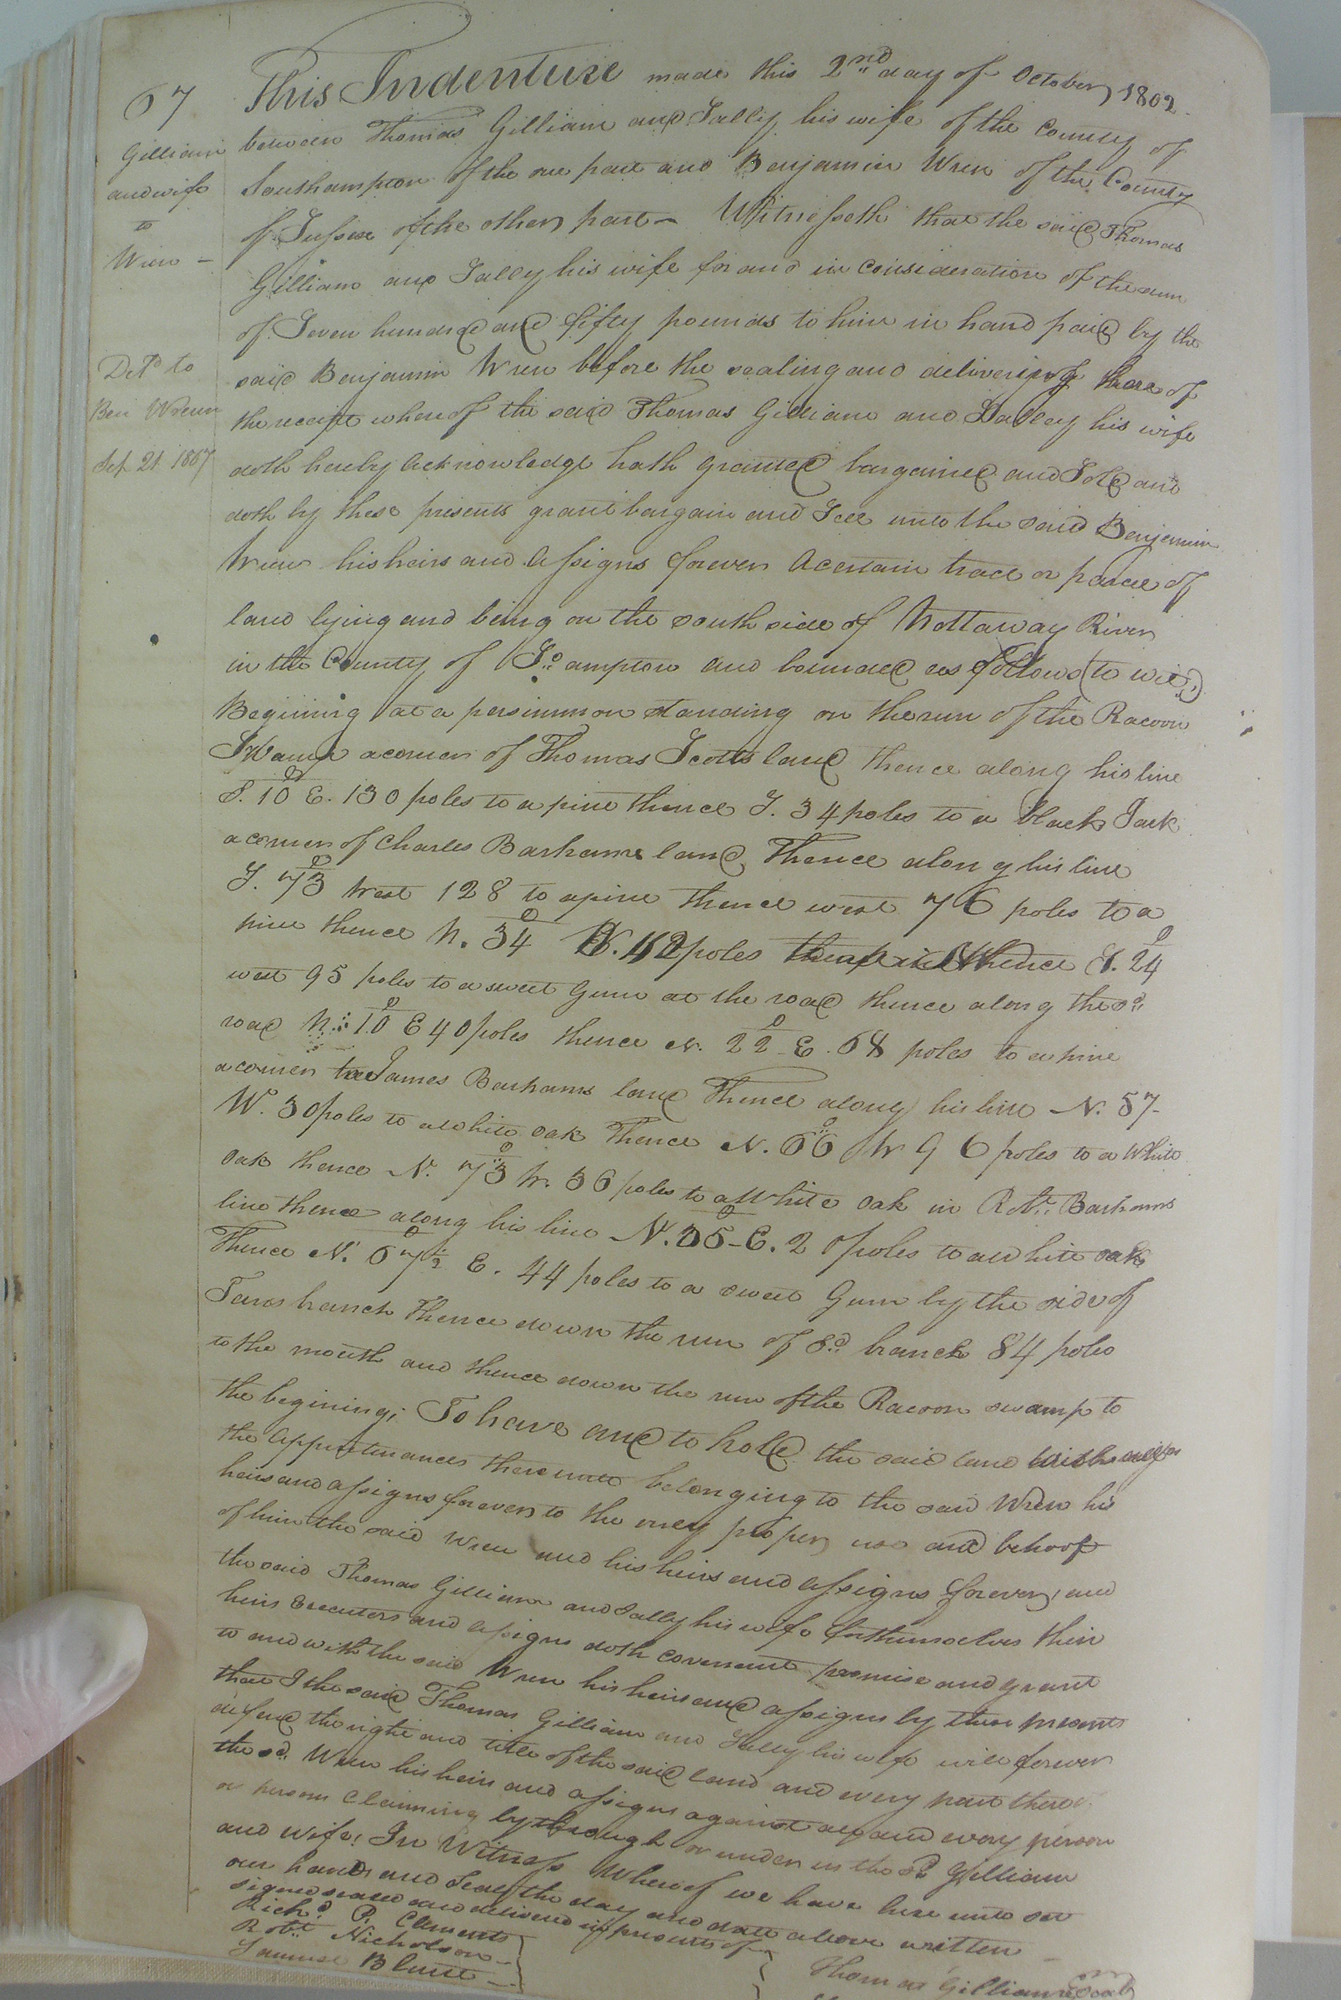 67
Gilliam
and wife
to
Wren —
Del'd to
Ben Wrenn
Sep 21 1867
This Indenture made this 2nd day of October 1802
between Thomas Gilliam and Sally his wife of the County of
Southampton of the one part and Benjamin Wren of the County
of Sussex of the other part — Witnesseth that the said Thomas
Gilliam and Sally his wife for and in consideration of the sum
of Seven hundred and fifty pounds to him in hand paid by the
said Benjamin Wren before the sealing and delivering there of
the receipt where of the said Thomas Gilliam and Salley his wife
doth hereby Acknowledge hath granted bargained and Sold and
doth by these presents grant bargain and Sell unto the said Benjamin
Wren his heirs and Assigns forever A certain tract or parcel of
land lying and being on the south side of Nottaway River
in the County of So.ampton and bounded as follows (to wit,)
Begining at a persimmon standing on the run of the Racoon
Swamp a corner of Thomas Scotts land thence along his line
S. 10 E. 130 poles to a pine thence S. 34 poles to a black Jack
a corner of Charles Barhams land, Thence along his line
S. 73 West 128 to a pine thence west 76 poles to a
pine thence N. 34 W. 42 poles thence S. 24
west 95 poles to a sweet Gum at the road thence along the sd.
road N. 10 E 40 poles thence N. 22 E. 68 poles to a pine
a corner James Barhams land Thence along his line N. 57-
W. 30 poles to a white oak Thence N. 66 W 96 poles to a White
oak thence N. 73 W. 36 poles to a White oak in Robt. Barhams
line thence along his line N. 35-E. 20 poles to a white oak
Thence N. 67 ½ E. 44 poles to a sweet Gum by the side of
branch Thence down the run of sd. branch 84 poles
to the mouth and thence down the run of the Racoon swamp to
the begining; To have and to hold the said land with all
the appurtenances thereunto belonging to the said Wren his
heirs and assigns forever to the only proper use and behoof
of him the said Wren and his heirs and assigns forever, and
the said Thomas Gilliam and Sally his wife for themselves their
heirs Executors and assigns doth covenant promise and grant
to and with the said Wren his heirs and assigns by these presents
that I the said Thomas Gilliam and Sally his wife will forever
defend the right and title of the said land and every part there of
the sd. Wren his heirs and assigns against all and every person
or persons Claiming by through or under us the sd Gilliam
and wife; In Witness Whereof we have here unto set
our hands and Seals the day and date above written
signed sealed and delivered in presents of
Richd. P. Clements
Robt. Nicholson
Samuel Blunt
Thomas Gilliam Seal